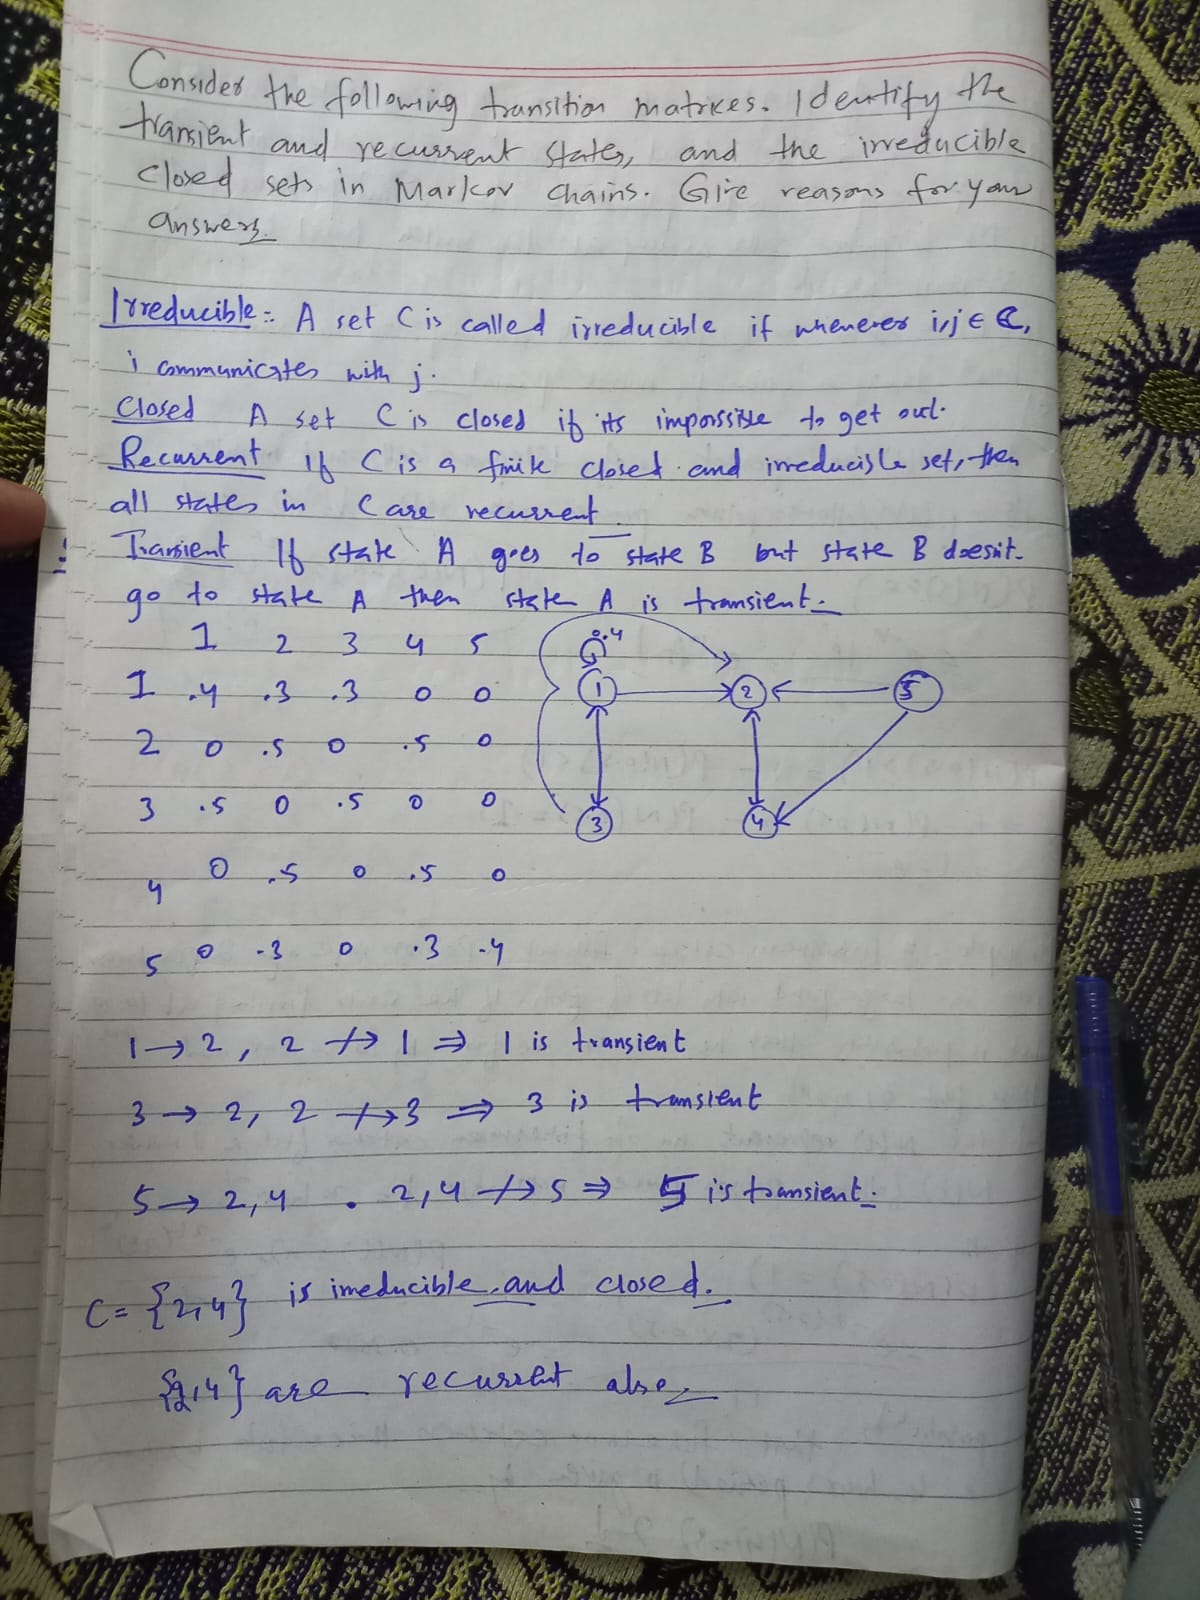 Consider the following transition matrices. Identify the
transient and recurrent states, and the irreducible
closed sets in Markov chains. Give reasons for your
answers.
Irreducible:- A set C is called irreducible if whenever i,j ∈ C,
i communicates with j.
Closed A set C is closed if its impossible to get out.
Recurrent If C is a finite closed and irreducible set, then
all states in C are recurrent.
Transient If state A goes to state B but state B doesn't
go to state A then state A is transient.
1 2 3 4 5
1 .4 .3 .3 0 0
2 0 .5 0 .5 0
3 .5 0 .5 0 0
4 0 .5 0 .5 0
5 0 .3 0 .3 .4
0.4
1 2 5
3 4
1 → 2, 2 ↛ 1 ⇒ 1 is transient
3 → 2, 2 ↛ 3 ⇒ 3 is transient
5 → 2,4 . 2,4 ↛ 5 ⇒ 5 is transient.
C = {2,4} is irreducible and closed.
{2,4} are recurrent also